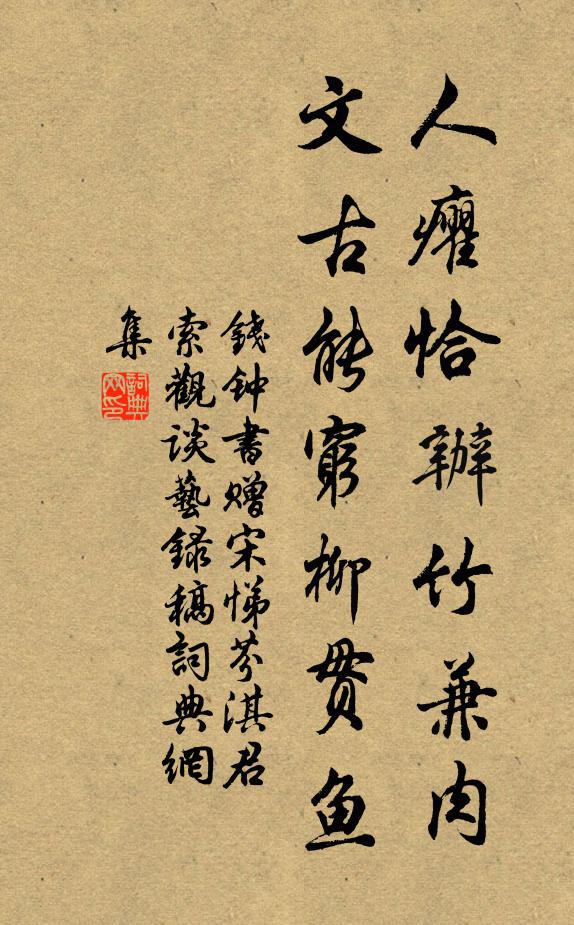 人癯恰辦竹兼肉
文古能窮柳貫鱼
錢钟書赠宋悌芬淇君
索觀谈藝録稿詞典網
集
詞典
网印